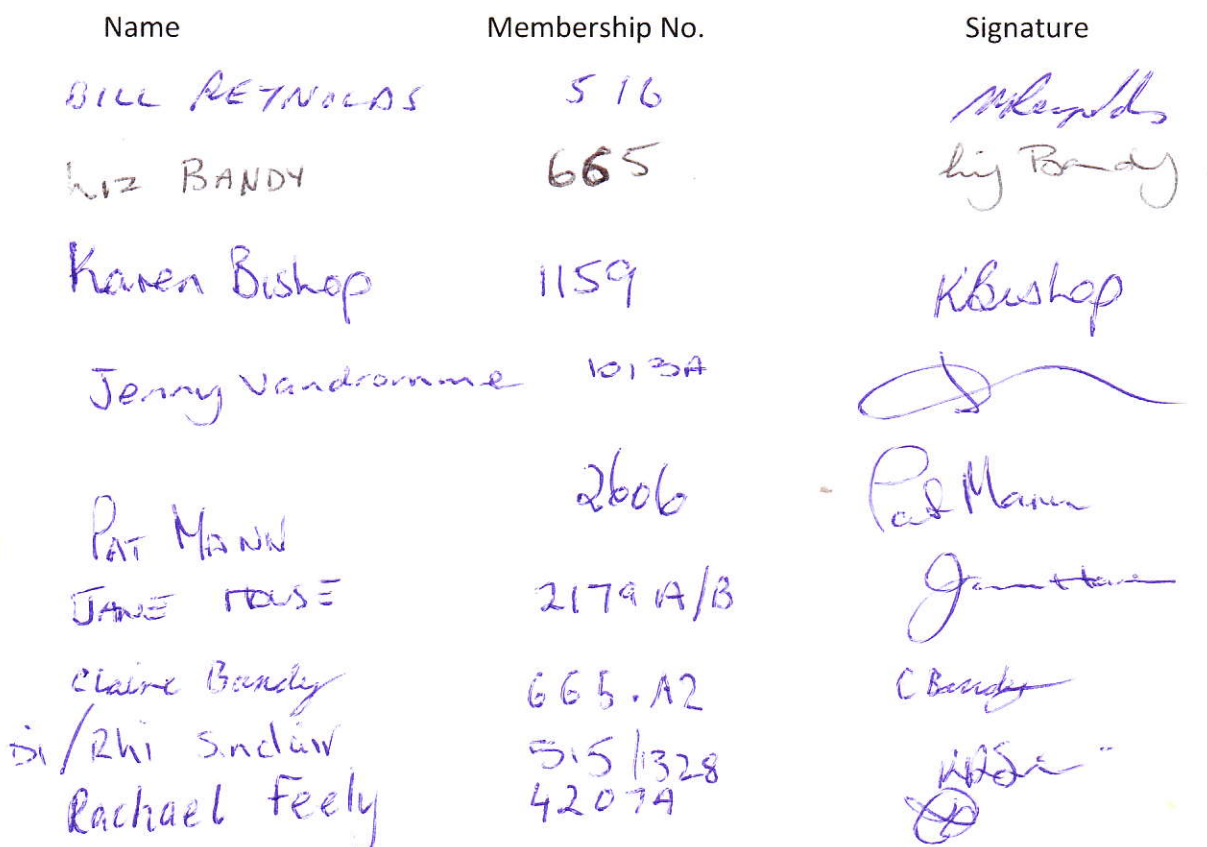 Name Membership No. Signature
BILL REYNOLDS 516 MReynolds
Liz BANDY 665 Liz Bandy
Karen Bishop 1159 KBishop
Jenny Vandromme 1013A
2606 Pat Mann
PAT MANN
JANE HOUSE 2179 A/B
Claire Bandy 665.A2 C Bandy
Di/Rhi Sinclair 515/1328
Rachael Feely 4207A